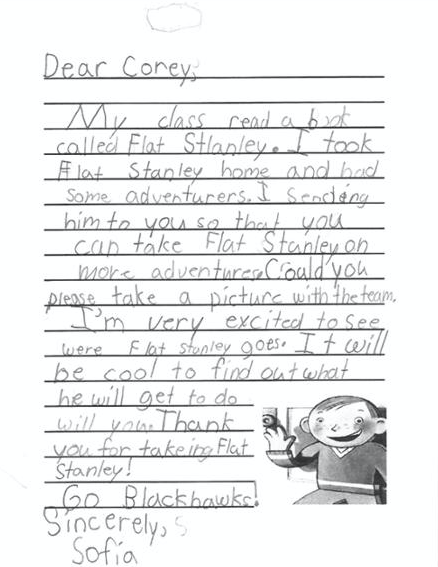 Dear Corey,
My class read a book
called Flat Stlanley. I took
Flat Stanley home and had
some adventurers. I Sending
him to you so that you
can take Flat Stanley on
more adventures. Could you
please take a picture with the team.
I'm very excited to see
were Flat Stanley goes. It will
be cool to find out what
he will get to do
will you. Thank
you for takeing Flat
Stanley!
Go Blackhawks!
Sincerely,
Sofia